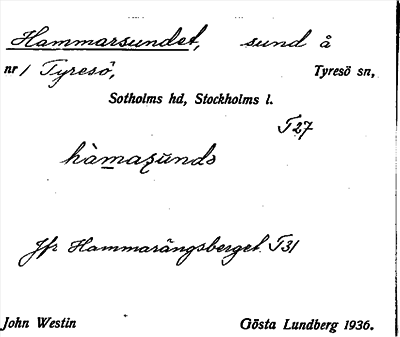 Hammarsundet, sund å
nr 1 Tyresö, Tyresö sn,
Sotholms hd, Stockholms l.
T27
hàmaşùndə
Jfr Hammarängsberget T31
John Westin Gösta Lundberg 1936.